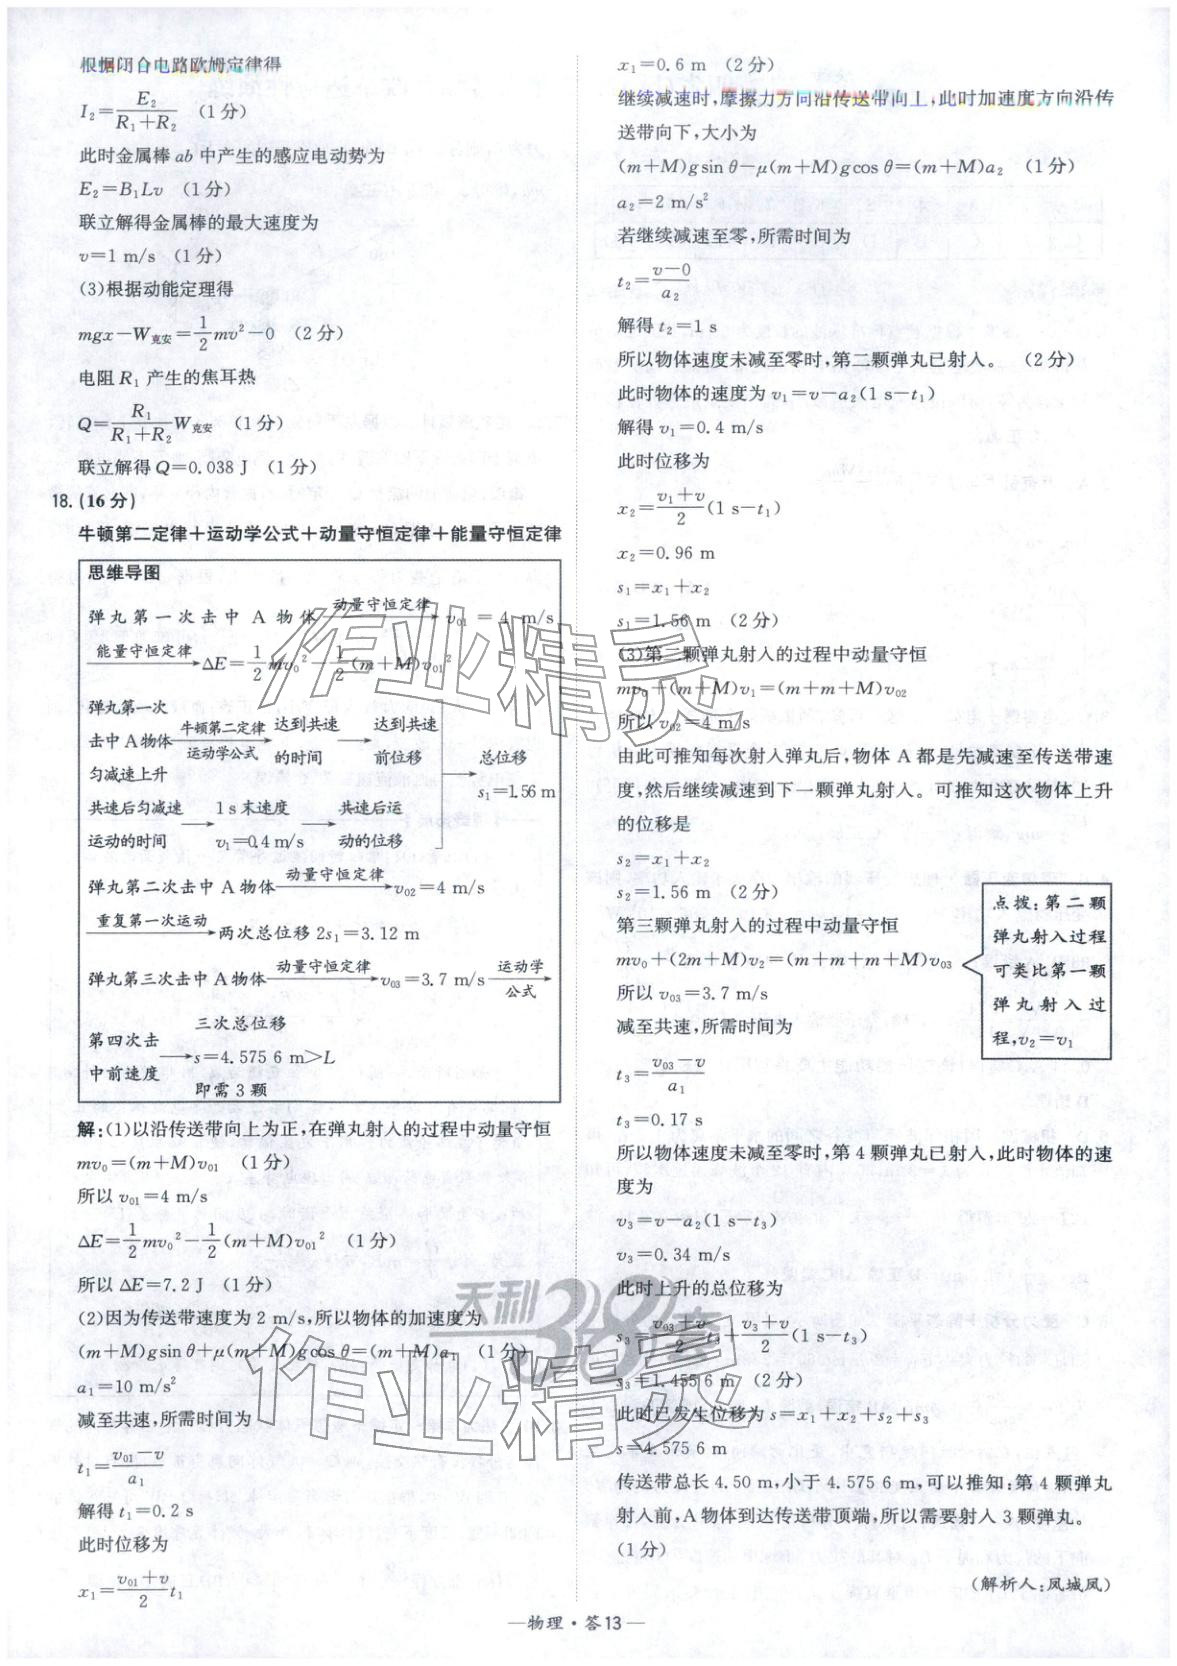 根据闭合电路欧姆定律得
I₂=E₂/(R₁+R₂) (1分)
此时金属棒ab中产生的感应电动势为
E₂=B₁Lv (1分)
联立解得金属棒的最大速度为
v=1 m/s (1分)
(3)根据动能定理得
mgx−W克安=1/2 mv²−0 (2分)
电阻R₁产生的焦耳热
Q=R₁/(R₁+R₂) W克安 (1分)
联立解得Q=0.038 J (1分)
18. (16分)
牛顿第二定律+运动学公式+动量守恒定律+能量守恒定律
思维导图
弹丸第一次击中A物体 动量守恒定律→ v₀₁=4 m/s
能量守恒定律→ ΔE=1/2 mv₀²−1/2(m+M)v₀₁²
弹丸第一次击中A物体匀减速上升 牛顿第二定律 运动学公式→ 达到共速的时间 → 达到共速前位移
共速后匀减速运动的时间 → 1 s末速度 v₁=0.4 m/s → 共速后运动的位移
→ 总位移 s₁=1.56 m
弹丸第二次击中A物体 动量守恒定律→ v₀₂=4 m/s
重复第一次运动→ 两次总位移2s₁=3.12 m
弹丸第三次击中A物体 动量守恒定律→ v₀₃=3.7 m/s 运动学公式→
第四次击中前速度 → 三次总位移 s=4.575 6 m>L 即需3颗
解:(1)以沿传送带向上为正,在弹丸射入的过程中动量守恒
mv₀=(m+M)v₀₁ (1分)
所以v₀₁=4 m/s
ΔE=1/2 mv₀²−1/2(m+M)v₀₁² (1分)
所以ΔE=7.2 J (1分)
(2)因为传送带速度为2 m/s,所以物体的加速度为
(m+M)gsin θ+μ(m+M)gcos θ=(m+M)a₁ (1分)
a₁=10 m/s²
减至共速,所需时间为
t₁=(v₀₁−v)/a₁
解得t₁=0.2 s
此时位移为
x₁=(v₀₁+v)/2 t₁
x₁=0.6 m (2分)
继续减速时,摩擦力方向沿传送带向上,此时加速度方向沿传
送带向下,大小为
(m+M)gsin θ−μ(m+M)gcos θ=(m+M)a₂ (1分)
a₂=2 m/s²
若继续减速至零,所需时间为
t₂=(v−0)/a₂
解得t₂=1 s
所以物体速度未减至零时,第二颗弹丸已射入。 (2分)
此时物体的速度为v₁=v−a₂(1 s−t₁)
解得v₁=0.4 m/s
此时位移为
x₂=(v₁+v)/2 (1 s−t₁)
x₂=0.96 m
s₁=x₁+x₂
s₁=1.56 m (2分)
(3)第二颗弹丸射入的过程中动量守恒
mv₀+(m+M)v₁=(m+m+M)v₀₂
所以v₀₂=4 m/s
由此可推知每次射入弹丸后,物体A都是先减速至传送带速
度,然后继续减速到下一颗弹丸射入。可推知这次物体上升
的位移是
s₂=x₁+x₂
s₂=1.56 m (2分)
第三颗弹丸射入的过程中动量守恒
mv₀+(2m+M)v₂=(m+m+m+M)v₀₃
点拨:第二颗
弹丸射入过程
可类比第一颗
弹丸射入过
程,v₂=v₁
所以v₀₃=3.7 m/s
减至共速,所需时间为
t₃=(v₀₃−v)/a₁
t₃=0.17 s
所以物体速度未减至零时,第4颗弹丸已射入,此时物体的速
度为
v₃=v−a₂(1 s−t₃)
v₃=0.34 m/s
此时上升的总位移为
s₃=(v₀₃+v)/2 t₃+(v₃+v)/2 (1 s−t₃)
s₃=1.455 6 m (2分)
此时已发生位移为s=x₁+x₂+s₂+s₃
s=4.575 6 m
传送带总长4.50 m,小于4.575 6 m,可以推知:第4颗弹丸
射入前,A物体到达传送带顶端,所以需要射入3颗弹丸。
(1分)
(解析人:凤城凤)
—物理·答13—
作业精灵
天利38套
作业精灵